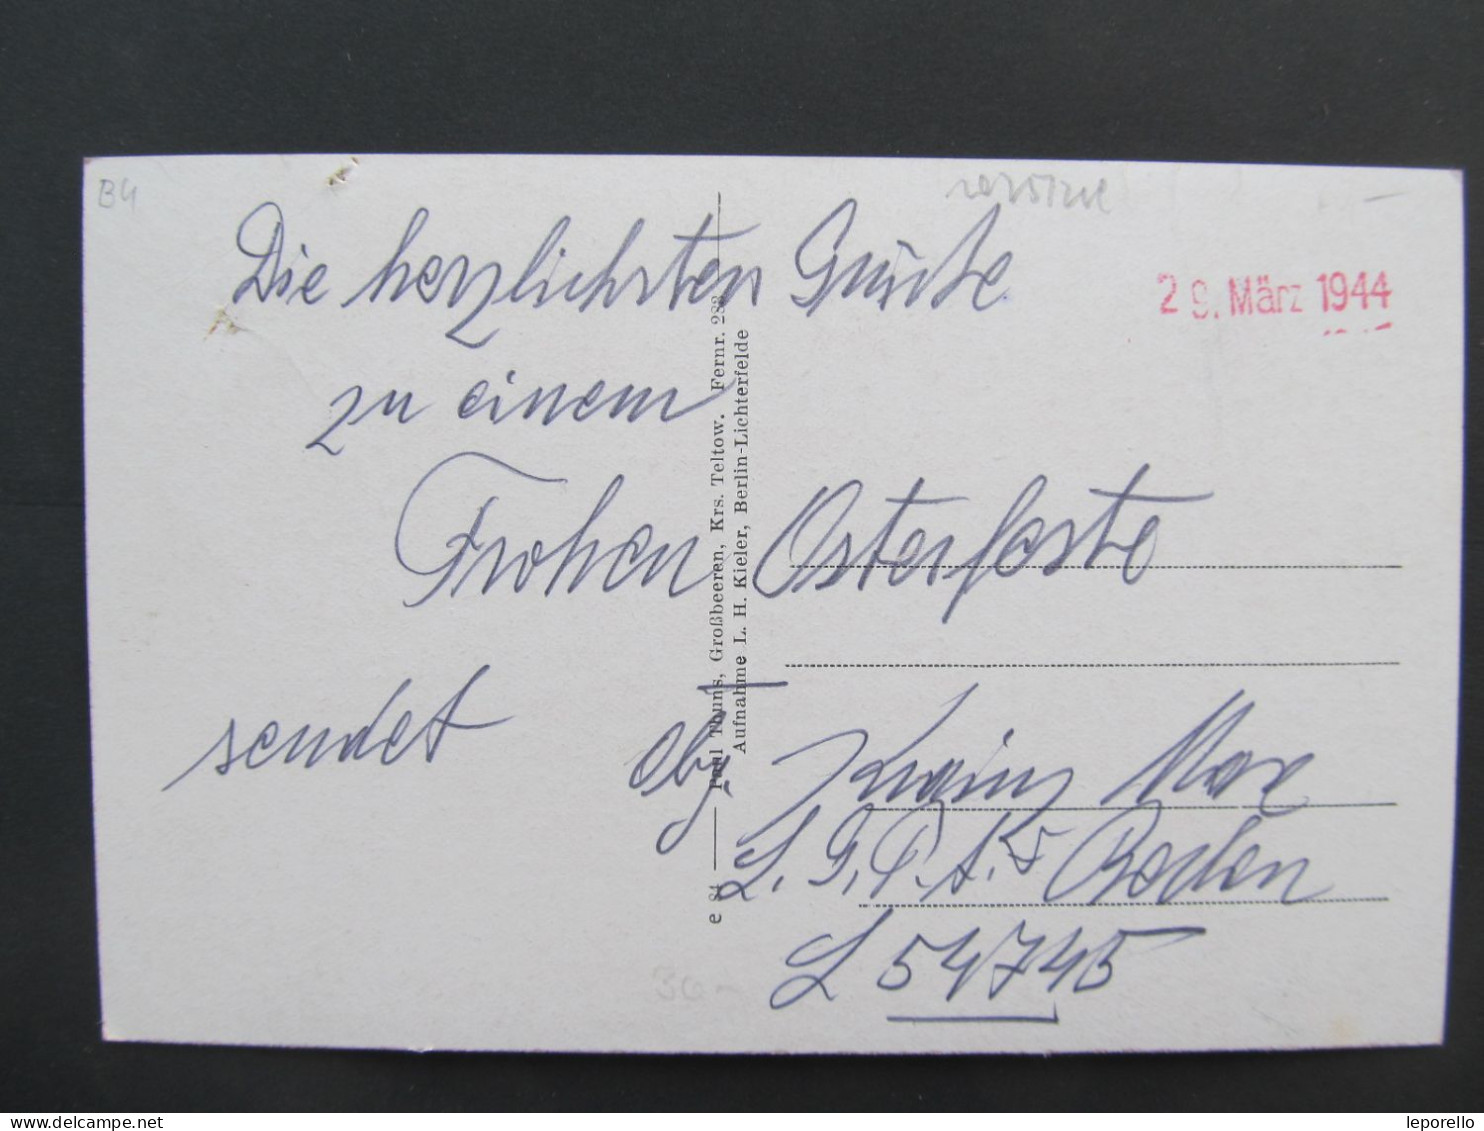 B4
Die herzlichsten Grüsse
29. März 1944
zu einem
Frohen Osterfeste
sendet Obj. Max
L. G. P. A. Berlin
L 54745
36-
e 84 — Paul Thuns, Großbeeren, Krs. Teltow. Fernr. 283
Aufnahme L. H. Kieler, Berlin-Lichterfelde
delcampe.net
leporello